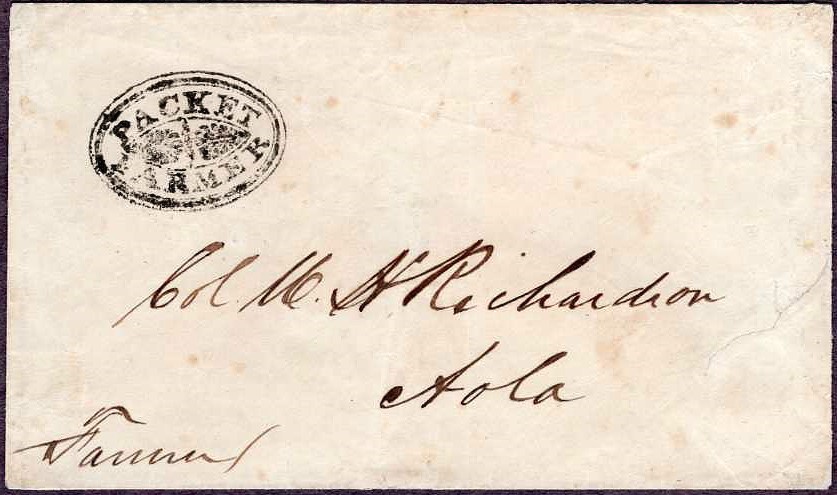 PACKET
FARMER
Col. M. H Richardson
Aola
Farmer